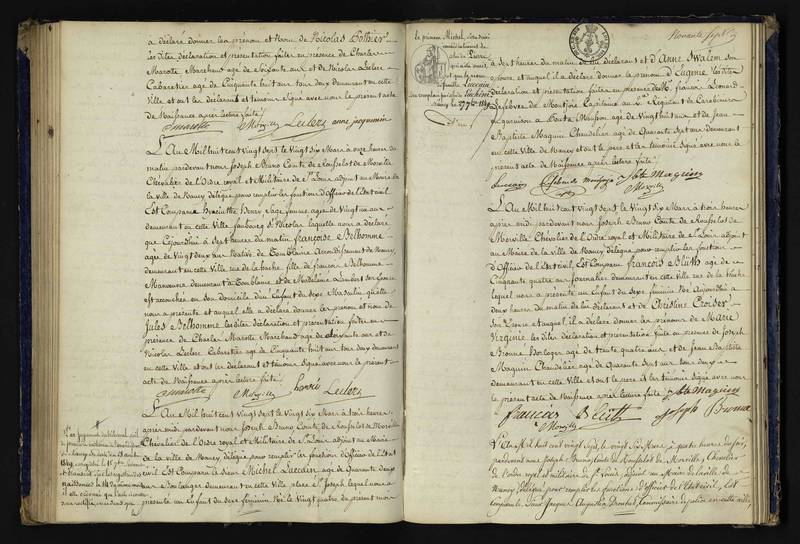 a déclaré donner les prénom et Nom de Nicolas Pothier
les dites déclaration et présentation faites en présence de Charles
Marotte Marchand agé de soixante ans et de Nicolas Leclerc
Cabaretier agé de Cinquante huit ans tous deux demeurant en cette
Ville et ont les déclarant et témoins signé avec nous le présent acte
de Naissance après lecture faite
Cmarotte Morville Leclerc anne jacquemin
L'An Mil huit cent vingt sept le Vingt Six Mars à onze heures du
matin pardevant nous Joseph Bruno Comte de Rousselot de Morville
Chevalier de l'Ordre royal et Militaire de St Louis adjoint au Maire de
la Ville de Nancy délégué pour remplir les fonctions d'Officier de l'Etat Civil
Est Comparue Hyacinthe Henry Sage femme agée de Vingt six ans
demeurant en cette Ville faubourg St Nicolas laquelle nous a déclaré
que Cejourd'hui à sept heures du matin françoise Belhomme
agée de Vingt deux ans Native de Tomblaine Arrondissement de Nancy,
demeurant en cette Ville rue de la hache fille de francois Belhomme
Manoeuvre demeurant à Tomblaine et de Madeleine Lambert son Epouse
est accouchée en son domicile d'un Enfant du sexe Masculin qu'elle
nous a présenté et auquel elle a déclaré donner les prénom et nom de
Jules Belhomme les dites déclaration et présentation faites en
présence de Charles Marotte Marchand agé de soixante ans et de
Nicolas Leclerc Cabaretier agé de Cinquante huit ans tous deux demeurant
en cette Ville et ont les déclarant et témoins signé avec nous le présent
acte de Naissance après lecture faite
Cmarotte Morville henry Leclerc
L'An Mil huit cent Vingt sept le Vingt Six Mars à trois heures
après midi pardevant nous Joseph Bruno Comte de Rousselot de Morville
Chevalier de l'Ordre royal et Militaire de St Louis adjoint au Maire
de la Ville de Nancy délégué pour remplir les fonctions d'Officier de l'Etat
civil Est Comparu le sieur Michel Luccain agé de Quarante deux
ans Boulanger demeurant en cette Ville place St Joseph lequel nous a
présenté un Enfant du sexe féminin Né le Vingt quatre du présent mois
Par jugement du tribunal civil
de première instance
de Nancy
1849, enregistré le 15 7bre
et transcrit sur les registres
naissances le
il a été ordonné que l'acte
sera rectifié, en ce sens que
le prénom Michel,
celui de Pierre
et que le nom
famille Luccain
sera remplacé par celui de Lucchini
Nancy le 27 7bre 1849
Nonante Sept
à sept heures du matin de lui déclarant et d'Anne Swalem son
épouse et auquel il a déclaré donner le prénom d'Eugénie les dites
déclaration et présentation faites en présence de M. françois Léonard
Lefebvre de Montjoie Capitaine au 2e Régiment de Carabiniers
en garnison à Pont à Mousson agé de Vingt huit ans et de Jean
Baptiste Maquin Chandelier agé de Quarante Sept ans demeurant
en cette Ville de Nancy et ont le père et les témoins signé avec nous le
présent acte de Naissance après lecture faite
Luccain Lefebvre de Montjoie J Bte Maquin
Morville
L'An Mil huit cent Vingt sept le Vingt Six Mars à trois heures
après midi pardevant nous Joseph Bruno Comte de Rousselot de
Morville Chevalier de l'Ordre royal et Militaire de St Louis adjoint
au Maire de la Ville de Nancy délégué pour remplir les fonctions
d'Officier de l'Etat civil, Est Comparu francois Blüth agé de
Cinquante quatre ans Journalier demeurant en cette Ville rue de la hache
lequel nous a présenté un Enfant du Sexe féminin Né Aujourd'hui à
deux heures du matin de lui déclarant et de Christine Croiser
Son Epouse et auquel il a déclaré donner les prénoms de Marie
Virginie les dites déclaration et présentation faites en présence de Joseph
Bronne Horloger agé de trente quatre ans et de Jean Baptiste
Maquin Chandelier agé de Quarante Sept ans tous deux
demeurant en cette Ville et ont le père et les témoins Signé avec nous
le présent acte de Naissance après lecture faite J Bte Maquin
francois Blüth Joseph Bronne
Morville
L'An Mil huit cent vingt sept, le vingt six Mars, à quatre heures du soir,
pardevant nous Joseph Bruno Comte de Rousselot de Morville, Chevalier
de l'ordre royal et militaire de St Louis, adjoint au Maire de la ville de
Nancy délégué pour remplir les fonctions d'officier de l'Etat civil, Est
comparu Sieur Jacques Augustin Drouhet, Commissaire de police en cette ville,